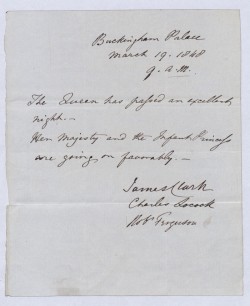 Buckingham Palace
March 19. 1848
9. a.m.
The Queen has passed an excellent
night. –
Her Majesty and the Infant Princess
are going on favorably. –
James Clark
Charles Locock
Robt Ferguson